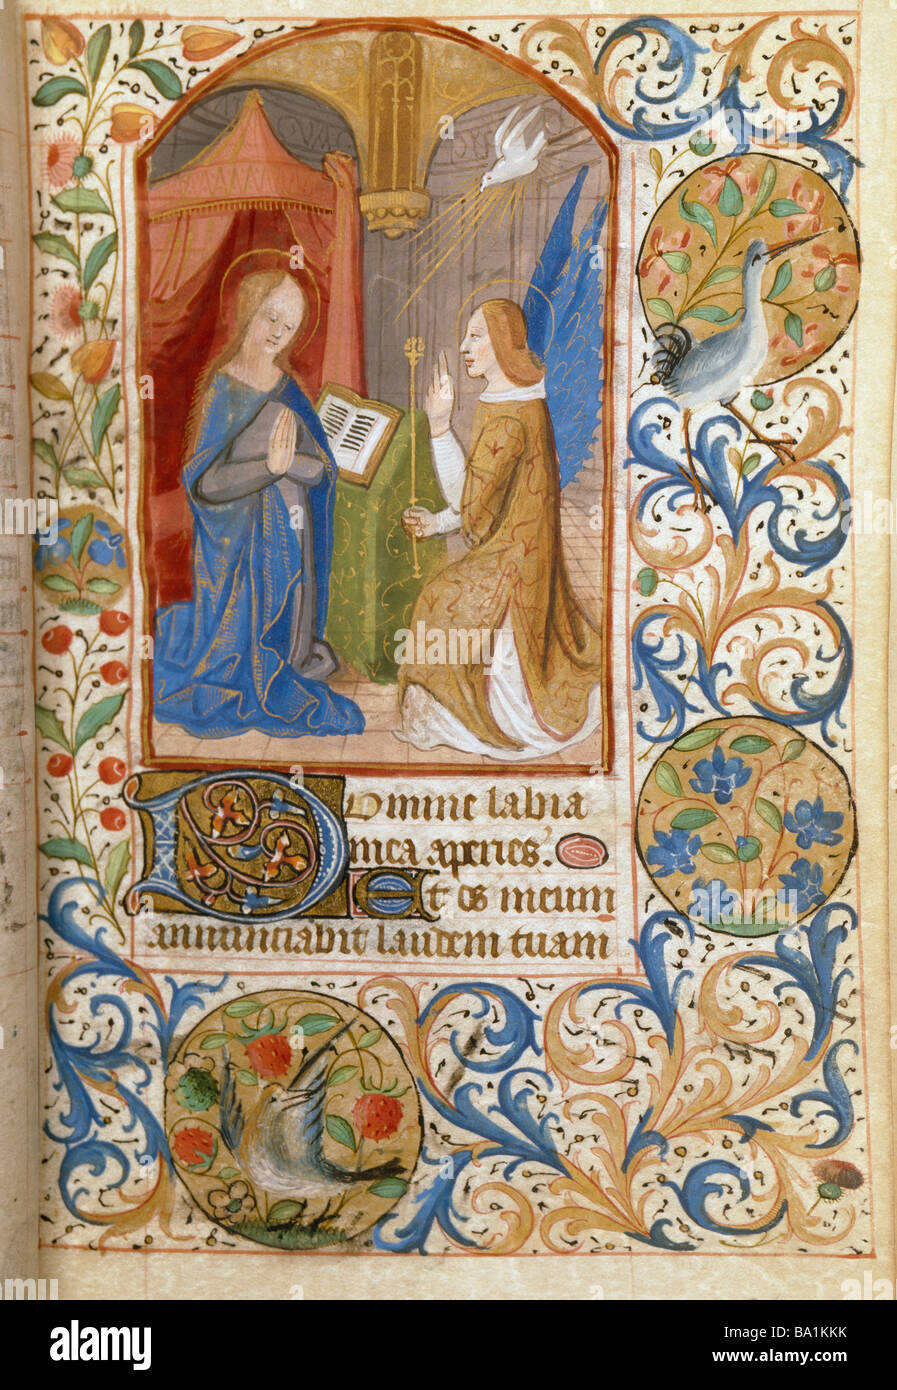 Domine labia
mea aperies.
Et os meum
annunciabit laudem tuam
alamy
Image ID: BA1KKK
www.alamy.com